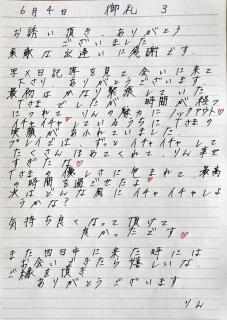 6月4日 御礼 3
お誘い頂き、ありがとう
ございました
素敵な出逢いに感謝です。
写メ日記等を見て会いに来て
下さり、ありがとうございます
最初はかなり緊張していた
Tさまでしたが、時間が経つ
につれて、りんの魅力にノックアウト♡
イチャイチャしているうちにTさまの
笑顔があふれていました
プレイでは、ずっとイチャイチャして
たくさんほめてくれて、りん幸せ
すぎたな♡
Tさまの優しさに包まれて最高
の時間を過ごせたよ♡
次はどんな風にイチャイチャしよ
うかな?
気持ち良くなって頂けて
良かったです♡
また四日中に来た時には
お会いできたら嬉しいな
ご縁を頂き
ありがとうございます
りん